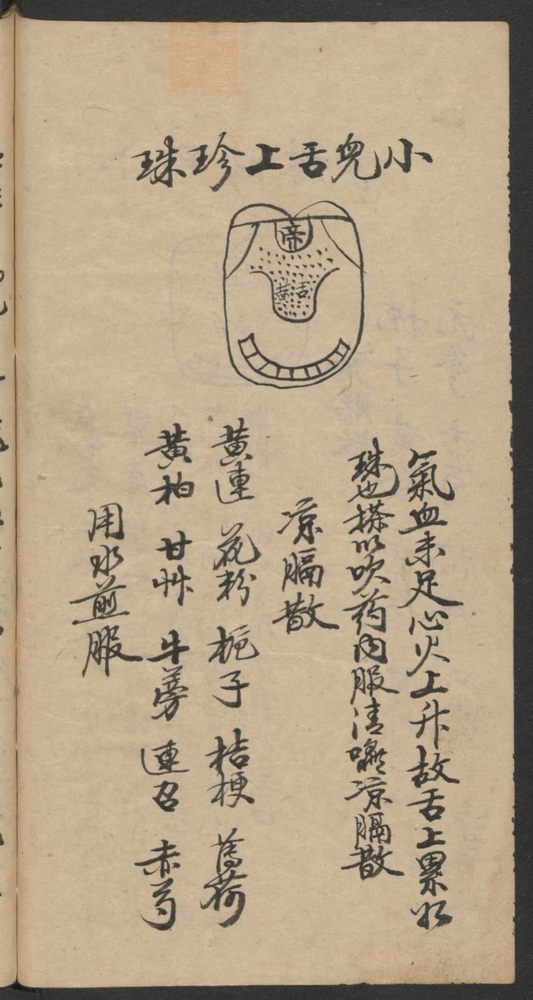 小兒舌上珍珠
帝
黃舌
氣血未足心火上升故舌上累如
珠也搽以吹药內服清嚨凉膈散
凉膈散
黃連 花粉 梔子 桔梗 薄荷
黃柏 甘艸 牛蒡 連召 赤芍
用水煎服